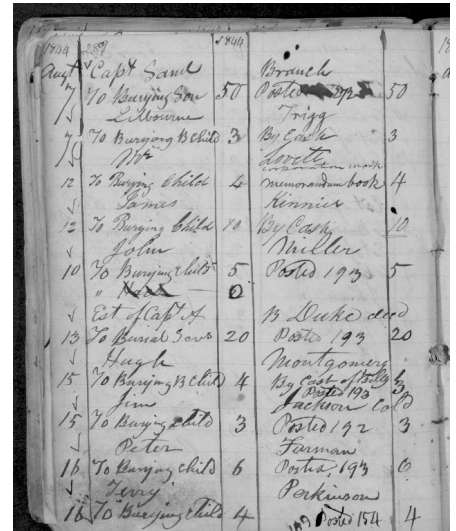 1844 289 1844
Augt Capt Saml Branch
7 To Burying Son 50 Posted 50
Lilbourne Trigg
7 To Burying B Child 3 By Cash 3
Wm Lovett
corporation work
12 To Burying Child 4 memorandum book 4
James Kinnier
12 To Burying Child 10 By Cash 10
John Miller
10 To Burying Child 5 Posted 193 5
" 0
Est of Capt A B Duke decd
13 To Burial Servs 20 Posted 193 20
Hugh Montgomery
15 To Burying B Child 4 By Cost of
Posted 193
Jim Jackson Cold
15 To Burying child 3 Posted 192 3
Peter Farman
16 To Burying Child 6 Posted 193 6
Terry Perkinson
16 To Burying Child 4 Posted 154 4